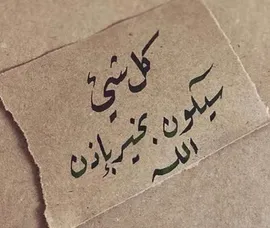 كل شيئ
سيكون بخير بإذن
الله